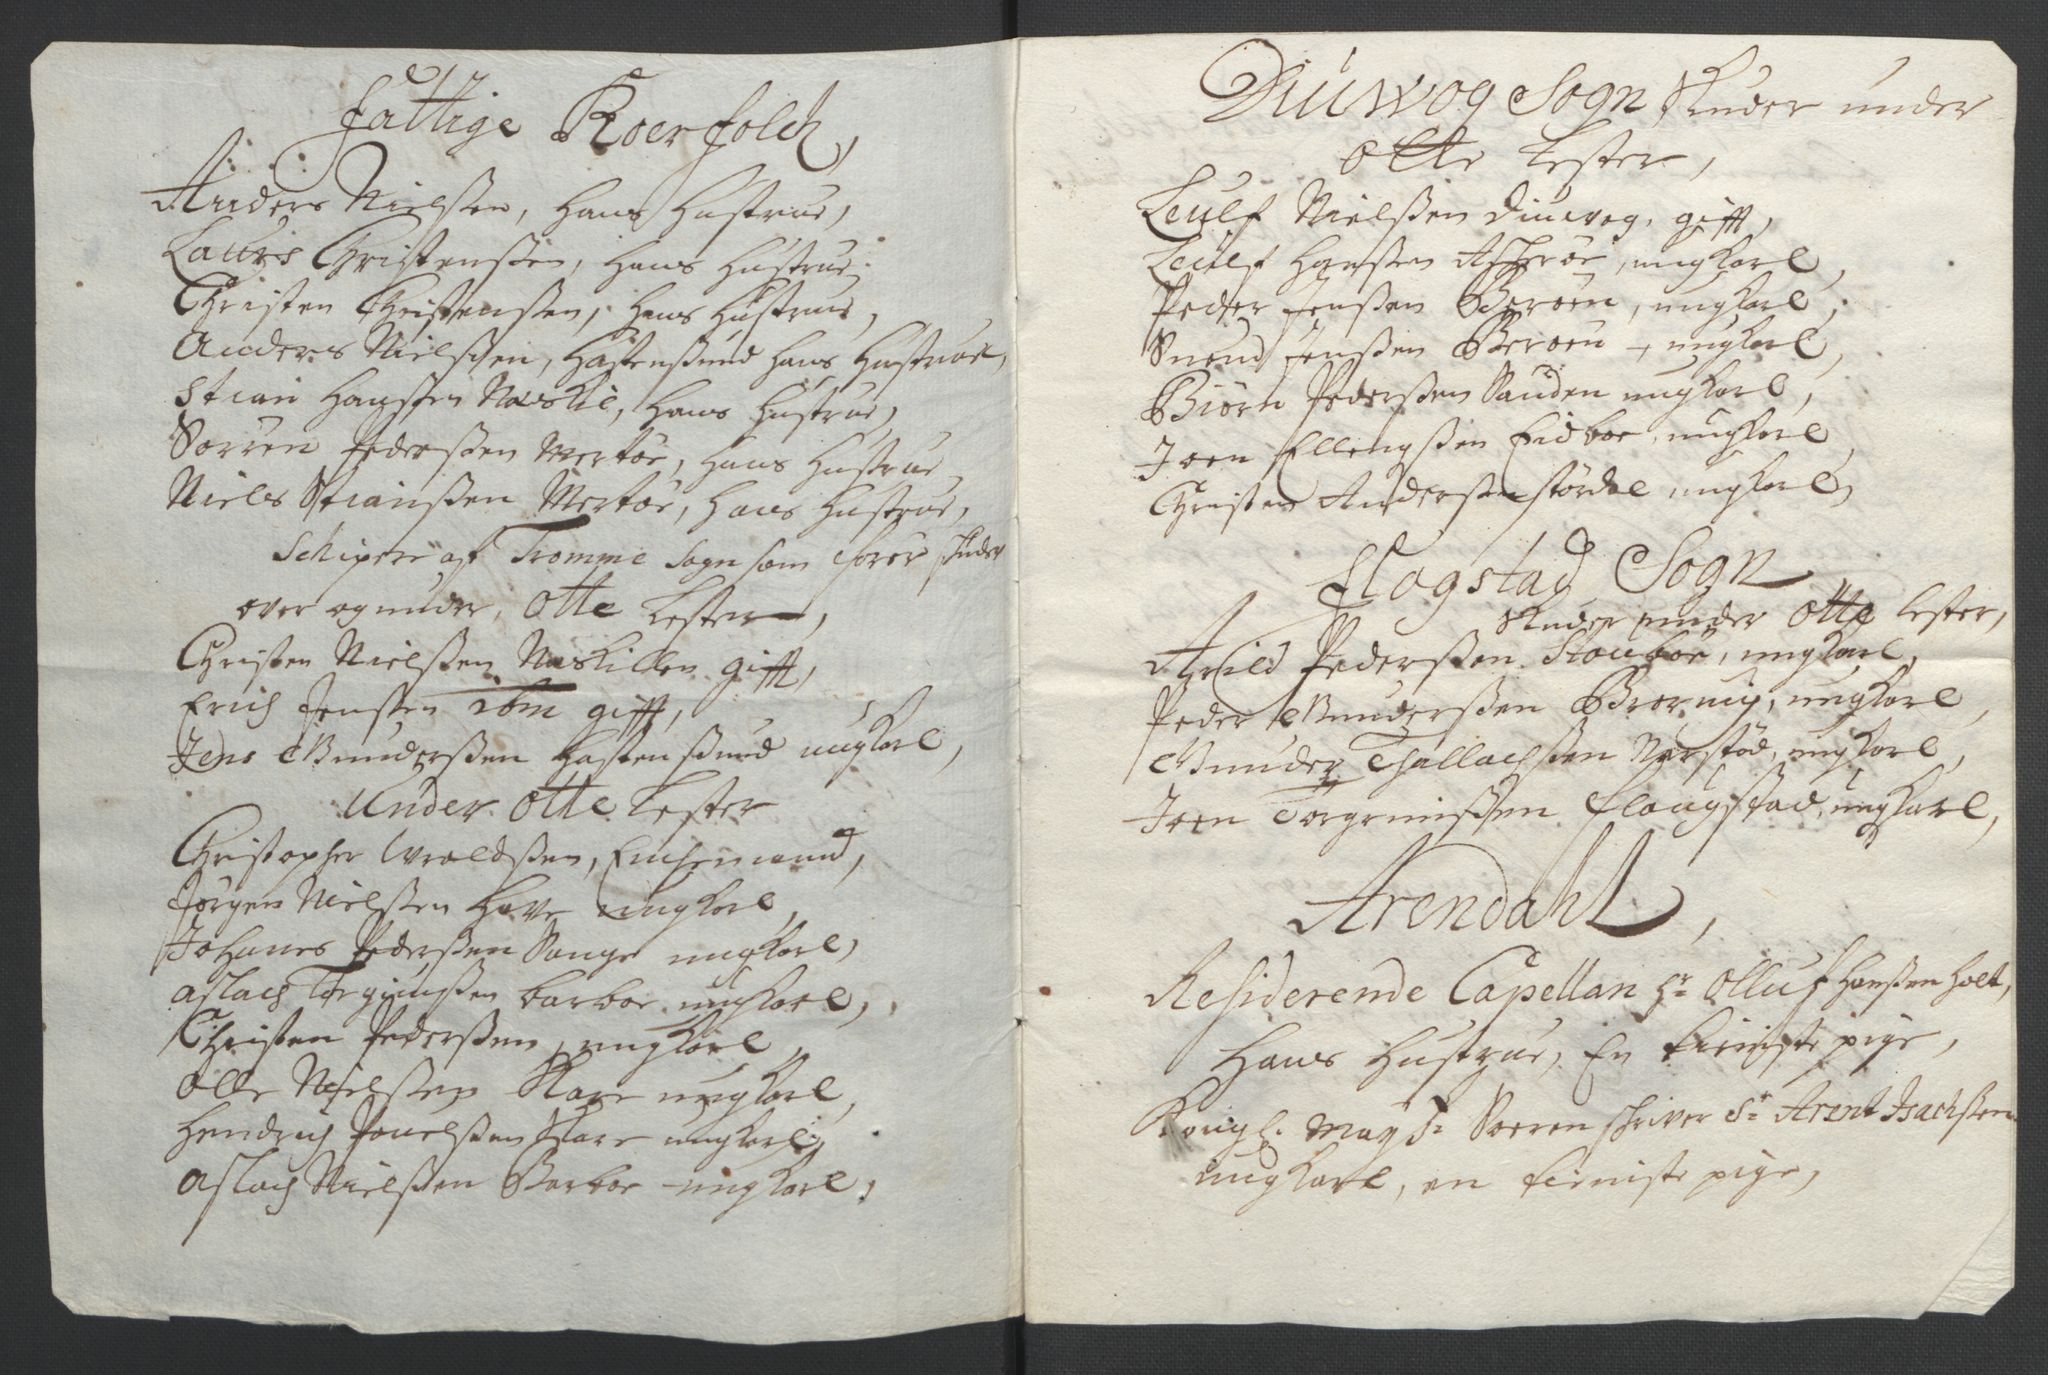 Fattige Koerfolch,
Anders Nielsßen, hans hustrue,
Laurs Christensßen, hans hustrue
Christen Christensßen, hans hustrue,
Anders Nielsßen, hastensund hans hustrue,
Stian Hansßen Naskil, hans hustrue,
Sorren Pedersßen Mertøe, hans hustrue
Niels Stiansßen Mertøe, hans hustrue,
Schipere af Tromme Sogn som fører skuder
over og under, Otte Lester,
Christen Nielsßen Naskillen gifft,
Erich Jensßen ibm gifft,
Jens Gundersßen hastensund ungkarl,
Under Otte Lester
Christopher Uroldsßen, Enchemand,
Jørgen Nielsßen have ungkarl,
Johanes Pedersßen Songe ungkarl,
Aslach Torgiusßen barboe ungkarl,
Christen Pedersßen, ungkarl,
Olle Nielsßen Skare ungkarl,
Hendrich Pouelsßen Skare ungkarl,
Aslach Nielsßen Barboe ungkarl,
Diuwog Sogn Skuder under
Otte Lester,
Leulf Nielsßen Diuevog, gifft,
Leulf Hansßen Askerøe, ungkarl,
Peder Jensßen Borøen, ungkarl,
Jensßen Borøen, ungkarl,
Biørn Pedersßen Sanden ungkarl,
Joen Ellingsßen Eidboe, ungkarl,
Christen Andersßen Størdal ungkarl,
Flogstad Sogn
Skuder under Otte Lester,
Arild Pedersßen Stouboe, ungkarl,
Peder Gundersßen ungkarl,
Gunder Thallachsßen Narstød, ungkarl,
Joen Torgrimsßen Flougstad, ungkarl,
Arendahl,
Residerende Capellan Hr Olluf Hansßen Holt,
Hans Hustrue, En tieniste pige,
Kongl. Mayts Soeren skriver Sr Arent Isachsßen
ungkarl, en tieniste pige,